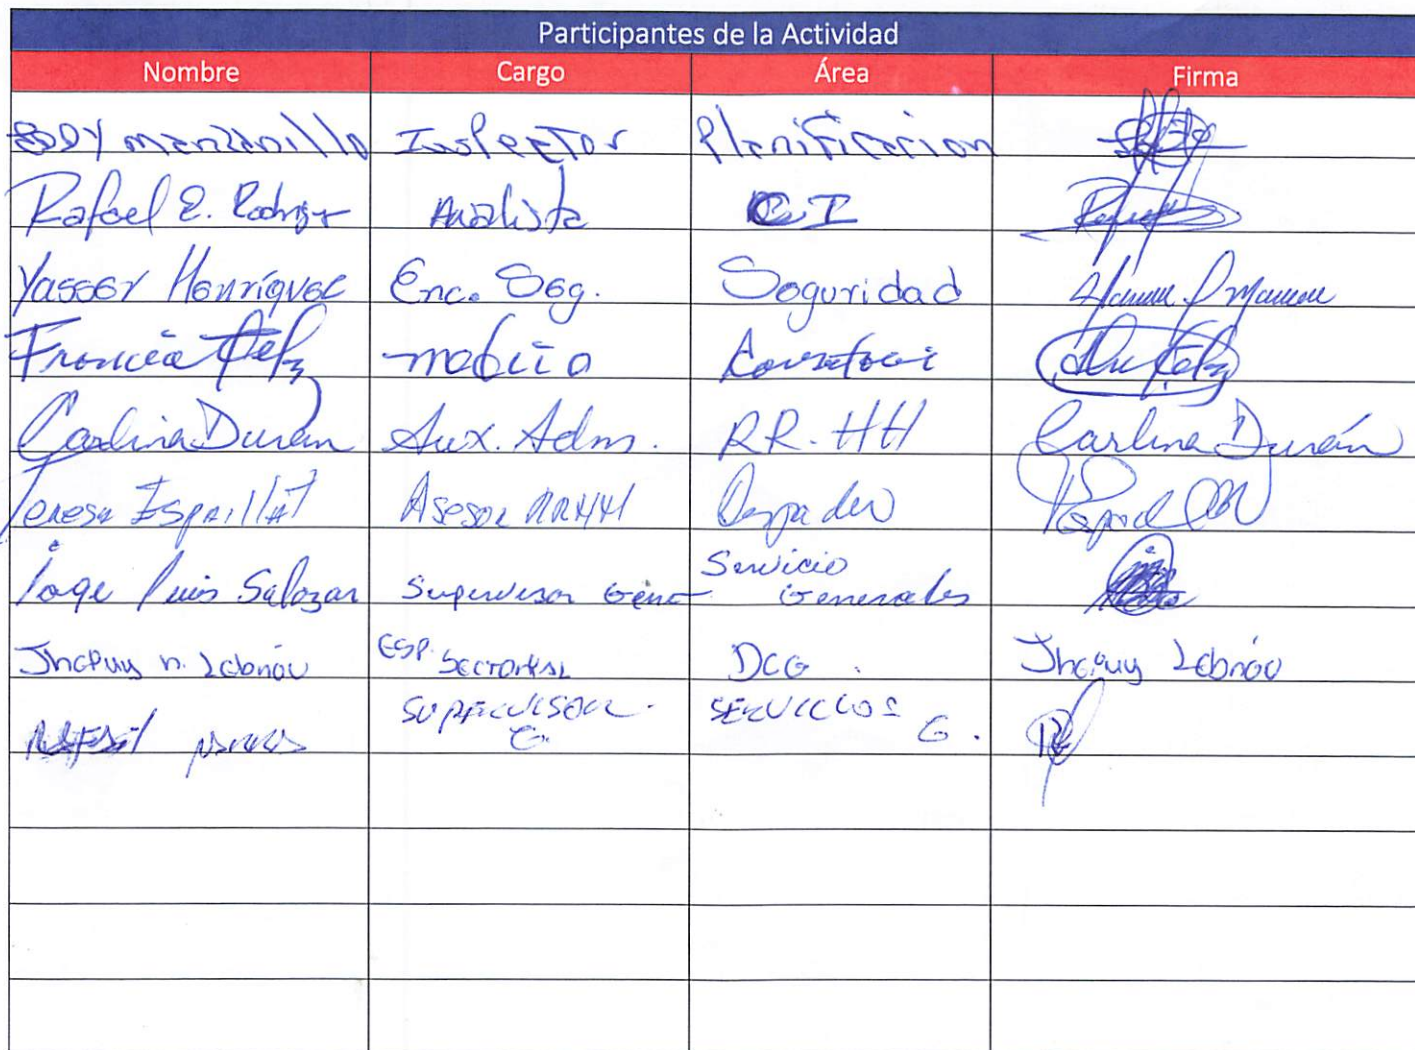 Participantes de la Actividad
Nombre Cargo Área Firma
EDDY manzanillo Inspector Planificacion
Rafael E. Rodrigz Analista CI
Yasser Henríquez Enc. Seg. Seguridad
Francia Feliz medico
Carlina Durán Aux. Adm. RR-HH Carlina Durán
Teresa Espaillat Asesor RRHH
Jorge Luis Salazar Supervisor Gene Servicio
Generales
Lebrón ESP. Sectorial DCG. Lebrón
Rafael SUPERVISOR. SERVICIOS
G. G.